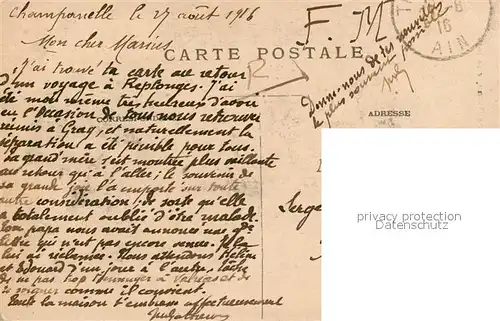 Champanelle le 27 août 1916
F. M
16
AIN
Mon cher Marius
CARTE POSTALE
Donne-nous de tes nouvelles
le plus souvent possible
J'ai trouvé ta carte au retour
d'un voyage à Replonges. J'ai
été moi même très heureux d'avoir
eu l'occasion de nous retrouver
CORRESPONDANCE
ADRESSE
réunis à Gray, et naturellement la
séparation a été pénible pour tous.
La grand'mère s'est montrée plus vaillante
au retour qu'à l'aller; le souvenir de
sa grande joie l'a emporté sur toute
autre considération; de sorte qu'elle
a totalement oublié d'être malade.
Ton papa nous avait annoncé une
lettre qui n'est pas encore venue. Je la
lui ai réclamée. Nous attendons
et Edouard d'un jour à l'autre. Tâche
de ne pas trop t'ennuyer à et de
te soigner comme il convient.
Toute la maison t'embrasse affectueusement
privacy protection
Serge
privacy protection